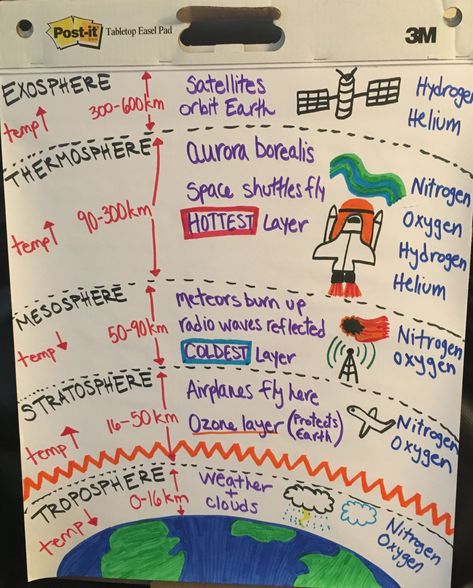 Post-it
Tabletop Easel Pad
3M
EXOSPHERE
temp
300-600km
Satellites
orbit Earth
Hydrogen
Helium
THERMOSPHERE
temp
90-300km
aurora borealis
Space shuttles fly
HOTTEST Layer
Nitrogen
Oxygen
Hydrogen
Helium
MESOSPHERE
temp
50-90km
meteors burn up
radio waves reflected
COLDEST Layer
Nitrogen
oxygen
STRATOSPHERE
temp
16-50km
Airplanes fly here
Ozone layer (Protects
Earth)
Nitrogen
Oxygen
TROPOSPHERE
temp
0-16km
Weather
+
clouds
Nitrogen
Oxygen